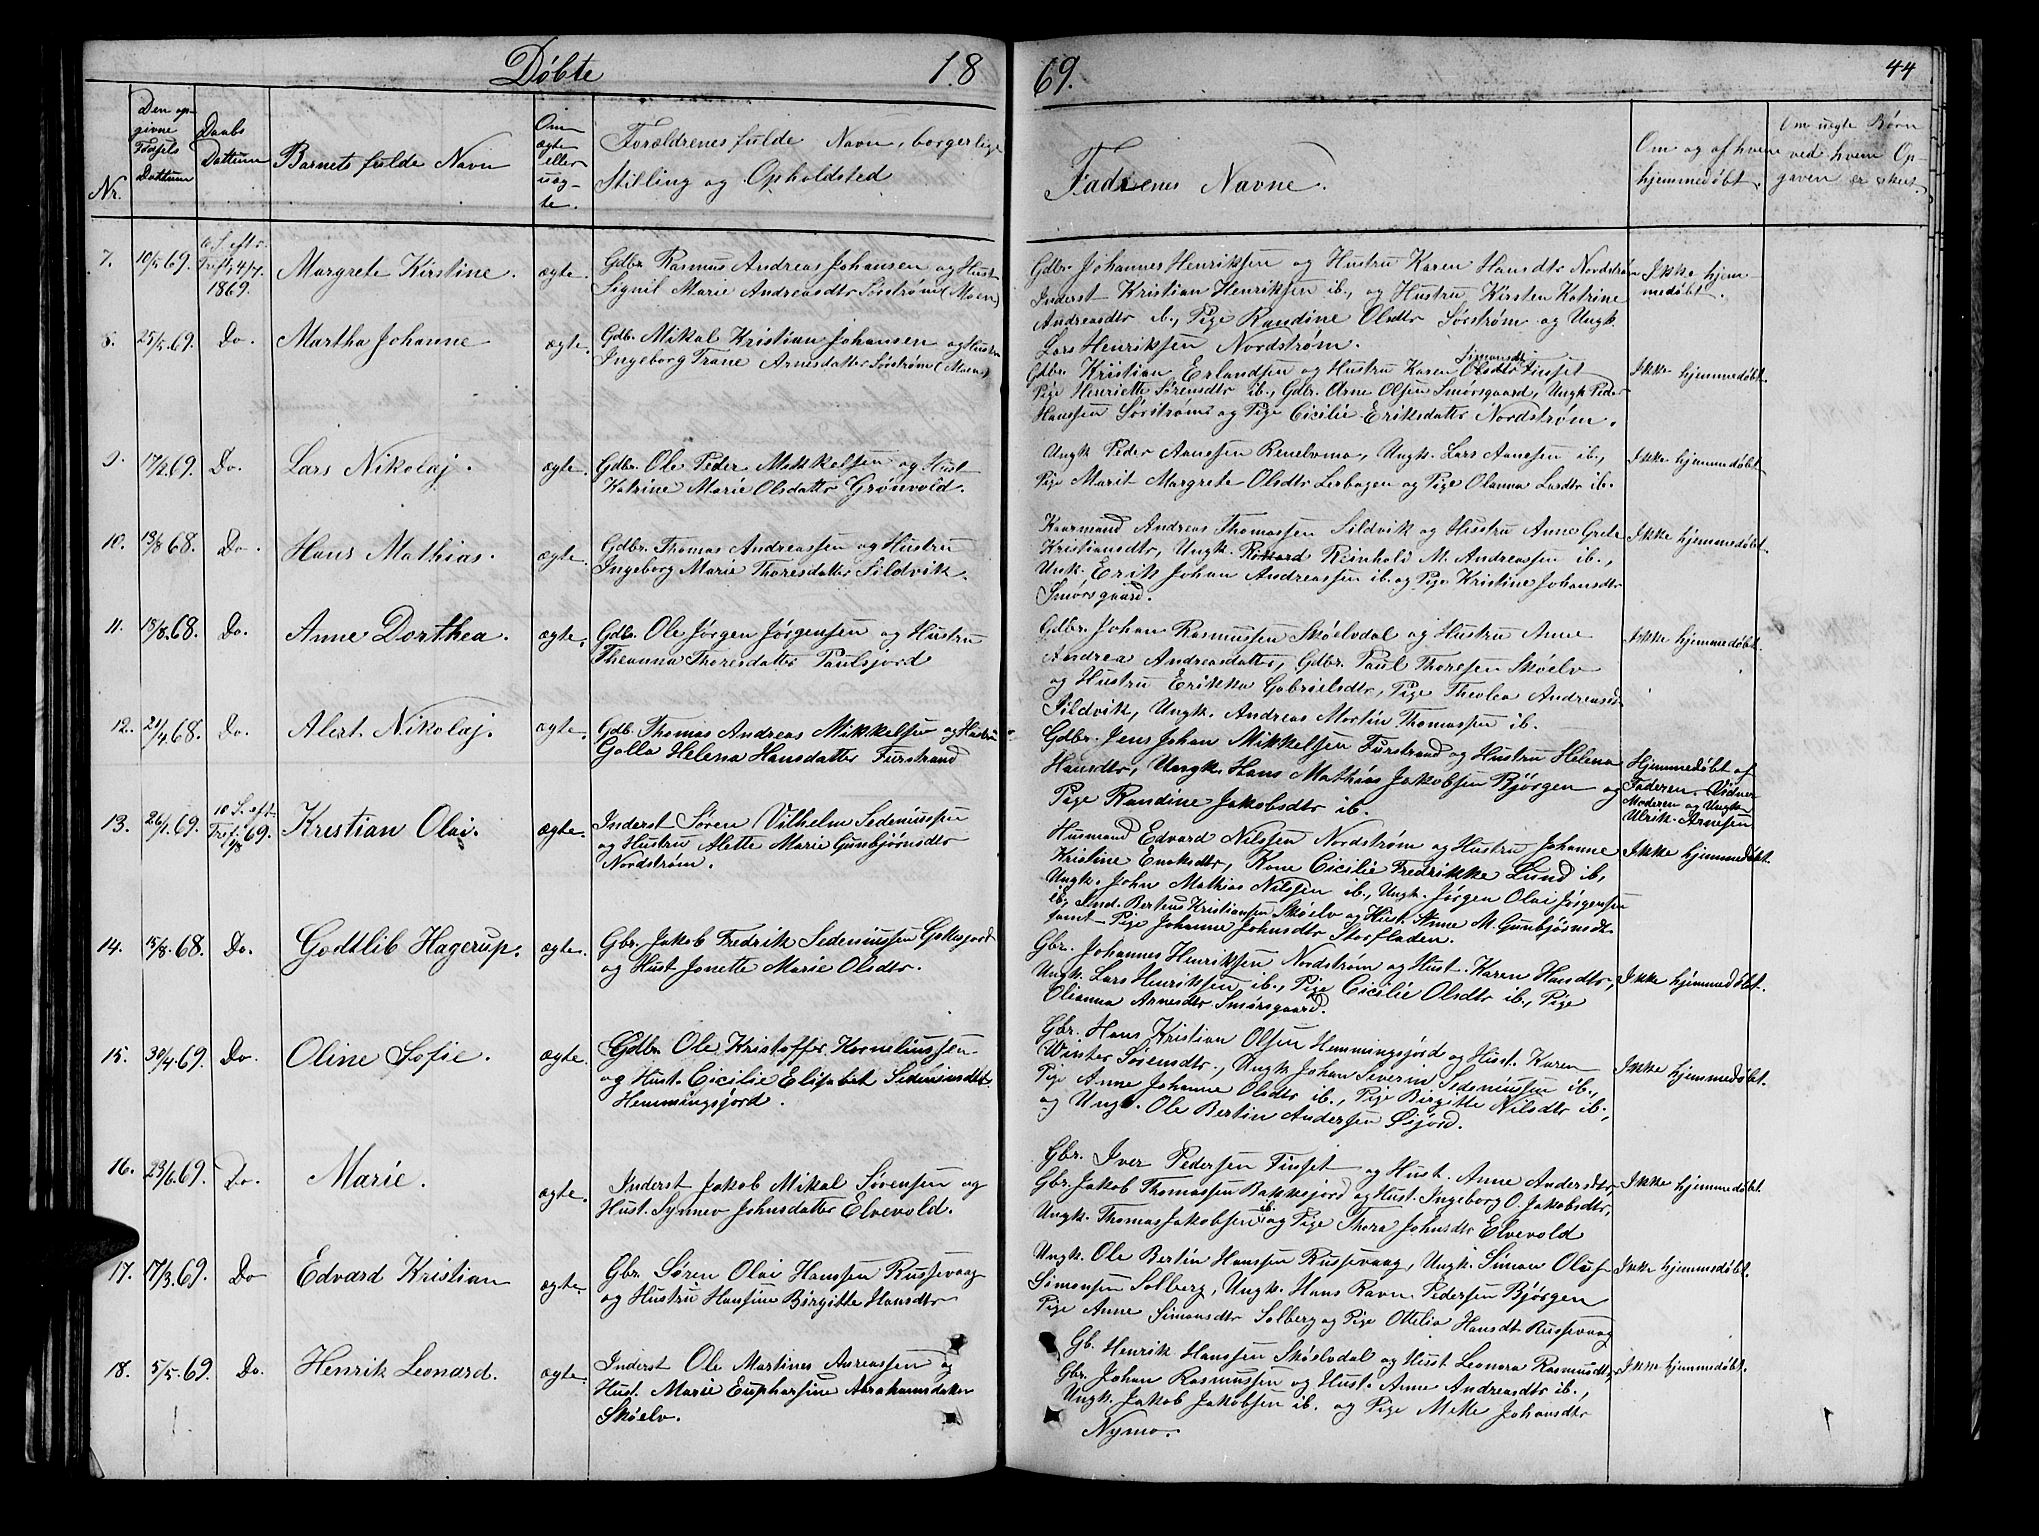 Døbte 18
69. 44
Nr. Den opgivne Fødsels Dattum Daabs Dattum Barnets fulde Navn Om ægte eller uægte. Forældrenes fulde Navn, borgerlige Stilling og Opholdsted Faddrenes Navne. Om og af hvem hjemmedøbt. Om uegte Børn ved hvem Opgaven er sket
7. 69. 6 S. eft. Tref. 4/7. 1869. Margrete Kirstine. ægte. Gdbr. Rasmus Andreas Johansen og Hust
Signil Marie Andreasdtr Sørstrøm (Moen)
Gdbr. Johannes Henriksen og Hustru Karen Hansdtr Nordstrøm
Inderst Kristian Henriksen ib., og Hustru Kirsten Katrine
Andreasdtr ib., Pige Randine Olsdtr Sørstrøm og Ungk.
Lars Henriksen Nordstrøm.
Ikke hjemmedøbt.
8. 69. Do. Martha Johanne ægte. Gdbr. Mikal Kristian Johansen og Hustru
Ingeborg Trane Arnesdatter Sørstrøm (Moen)
Gdbr. Kristian Erlandsen og Hustru Karen Simonsdtr Finset
Pige Henriette Sørensdtr ib., Gdbr. Arne Olsen Smørsgaard, Ungk Peder
Hansen Sørstrøm og Pige Cicilie Eriksdatter Nordstrøm.
Ikke hjemmedøbt
9. 17/2 69. Do. Lars Nikolaj. ægte. Gdbr. Ole Peder Mikkelsen og Hust
Katrine Marie Olsdatter Grønvold.
Ungk Peder Aanesen Renelvmo, Ungk. Lars Aanesen ib.,
Pige Marit Margrete Olsdtr Lerbogen og Pige Olanna Larsdtr ib.
Ikke hjemmedøbt
10. 68. Do. Hans Mathias. ægte. Gdbr. Thomas Andreassen og Hustru
Ingeborg Marie Thoresdatter Sildvik.
Kaarmand Andreas Thomassen Sildvik og Hustru Anne Grete
Kristiansdtr, Ungk. Rikard Reinhold M. Andreassen ib.,
Ungk. Erik Johan Andreassen ib. og Pige Kristine Johansdtr
Smørsgaard.
Ikke hjemmedøbt.
11. 18/8. 68. Do. Anne Dorthea. ægte. Gdbr. Ole Jørgen Jørgensen og Hustru
Theanna Thoresdatter Paulsjord
Gdbr. Johan Rasmussen Skøelvdal og Hustru Anne
Andrea Andreasdatter, Gdbr. Paul Thoresen Skøelv
og Hustru Erikka Gabrielsdtr, Pige Andreasd
Sildvik, Ungk. Andreas Mortin Thomassen ib.
Ikke hjemmedøbt.
12. 21/4 68. Do. Alert Nikolaj. ægte. Gdb. Thomas Andreas Mikkelsen og Hustru
Golla Helena Hansdatter Furstrand
Gdbr. Jens Johan Mikkelsen Furstrand og Hustru Helena
Hansdtr, Ungk. Hans Mathias Jakobsen Bjørgen og
Pige Randine Jakobsdtr ib.
Hjemmedøbt af
Faderen. Vidner
Moderen og Ungk.
Ulrik Arnesen
13. 26/1. 69. 10 S. eft Tref. 1/8 69. Kristian Olai. ægte. Inderst Søren Vilhelm Sedeniussen
og Hustru Alette Marie Gunbjørnsdtr
Nordstrøm.
Husmand Edvard Nilssen Nordstrøm og Hustru Johanne
Kristine Enoksdtr, Kone Cicilie Fredrikke Lund ib,
Ungk. John Mathias Nilssen ib., Ungk. Jørgen Olai Jørgensen
ib, Ind. Berteus Kristiansen Skøelv og Hust. Anne M. Gunbjørnsdt.
samt Pige Johanne Johnsdtr Storfladen.
Ikke hjemmedøbt.
14. 15/8. 68. Do. Godtlib Hagerup. ægte. Gbr. Jakob Fredrik Sedeniussen Gaksjord
og Hust. Jonette Marie Olsdtr.
Gbr. Johannes Henriksen Nordstrøm og Hust. Karen Hansdtr,
Ungk. Lars Henriksen ib., Pige Cicilie Olsdtr ib., Pige
Olianna Arnesdtr Smørsgaard.
Ikke hjemmedøbt.
15. 30/4. 69. Do. Oline Sofie. ægte. Gdbr. Ole Kristoffer Korneliussen
og Hust. Cicilie Elisabet Sedeniusdtr,
Hemmingsjord.
Gbr. Hans Kristian Olsen Hemmingsjord og Hust. Karen
Winter Sørensdtr., Ungk Johan Severin Sedeniussen ib.,
Pige Anne Johanne Olsdtr ib., Pige Birgitte Nilsdtr ib.,
og Ungk. Ole Bertin Andersen Øijord.
Ikke hjemmedøbt.
16. 69. Do. Marie. ægte. Inderst Jakob Mikal Sørensen og
Hust. Synnev Johnsdatter Elvevold.
Gbr. Iver Pedersen Finset og Hust. Anne Andersdtr,
Gbr. Jakob Thomassen Bakkejord og Hust. Ingeborg O. Jakobsdtr,
Ungk. Thomas Jakobsen ib. og Pige Thora Johnsdtr Elvevold
Ikke hjemmedøbt.
17. 17/3. 69. Do Edvard Kristian ægte. Gbr. Søren Olai Hanssen Russevaag
og Hustru Hansine Birgitte Hansdtr
Ungk. Ole Bertin Hanssen Russevaag, Ungk. Simon Oluf
Simonsen Solberg, Ungk. Hans Ravn Pedersen Bjørgen
Pige Anne Simonsdtr Solberg og Pige Ottelia Hansdt. Russevaag
Ikke hjemmedøbt.
18. 5/5. 69. Do. Henrik Leonard. ægte. Inderst Ole Martines Anreassen og
Hust. Marie Eupharsine Abrahamsdatter
Skøelv.
Gb. Henrik Hanssen Skøelvdal og Hust Leonora Rasmusdtr,
Gbr. Johan Rasmussen og Hust. Anne Andreasdtr ib.,
Ungk. Jakob Jakobsen ib. og Pige Mette Johansdtr
Nymo.
Ikke hjemmedøbt.